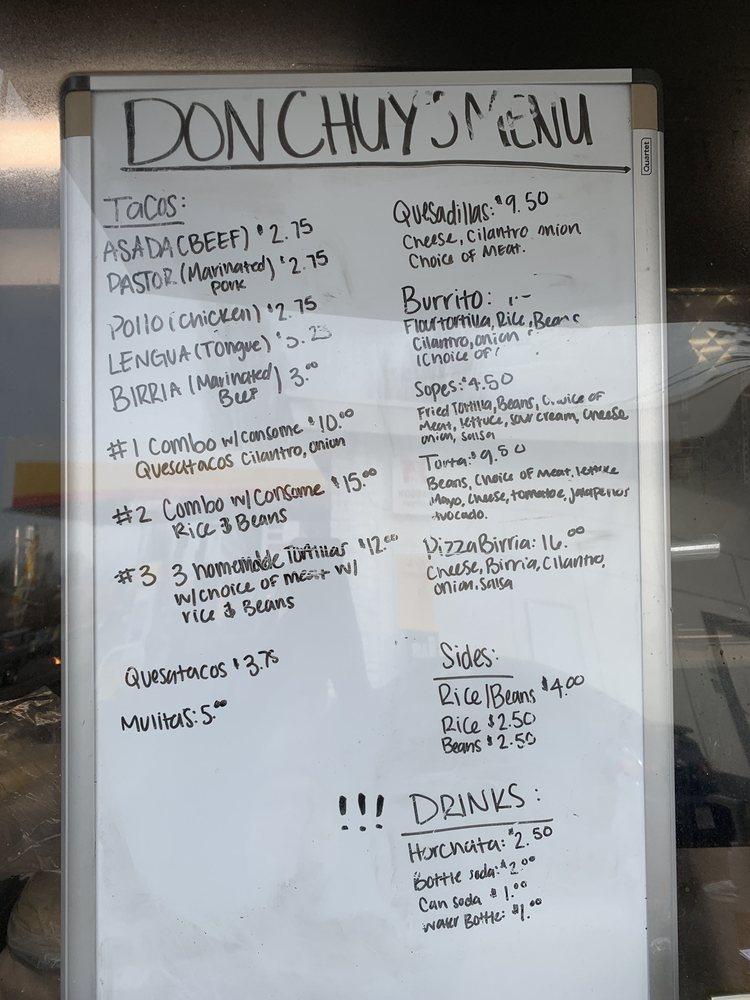 DON CHUY'S MENU
Quartet
Tacos:
ASADA (BEEF) $2.75
PASTOR (Marinated) $2.75
Pork
Pollo (chicken) $2.75
LENGUA (Tongue)
BIRRIA (Marinated) 3.00
Beef
#1 Combo w/consome $10.00
Quesatacos Cilantro, onion
#2 Combo w/Consome $15.00
Rice & Beans
#3 3 homemade Tortillas $12.00
w/choice of meat w/
rice & Beans
Quesatacos $3.75
Mulitas: 5.00
Quesadillas: $9.50
Cheese, Cilantro onion
Choice of Meat.
Burrito:
Flour tortilla, Rice, Beans
Cilantro, onion
(Choice of
Sopes: $4.50
Fried Tortilla, Beans, Choice of
Meat, lettuce, sour cream, cheese
onion, salsa
Torta: $9.50
Beans, choice of meat, lettuce
Mayo, cheese, tomatoe, jalapeños
avocado.
Pizza Birria: 16.00
Cheese, Birria, Cilantro,
onion, salsa
Sides:
Rice/Beans $4.00
Rice $2.50
Beans $2.50
!!! DRINKS:
Horchata: $2.50
Bottle soda: $2.00
Can soda $1.00
water Bottle: $1.00